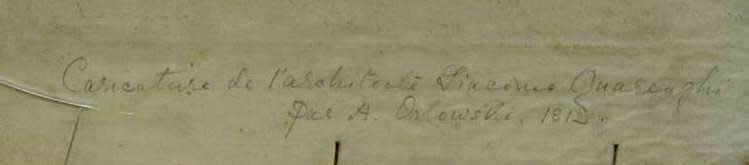 Caricature de l'architecte Giacomo Quarenghi
par A. Orlowski, 1812.